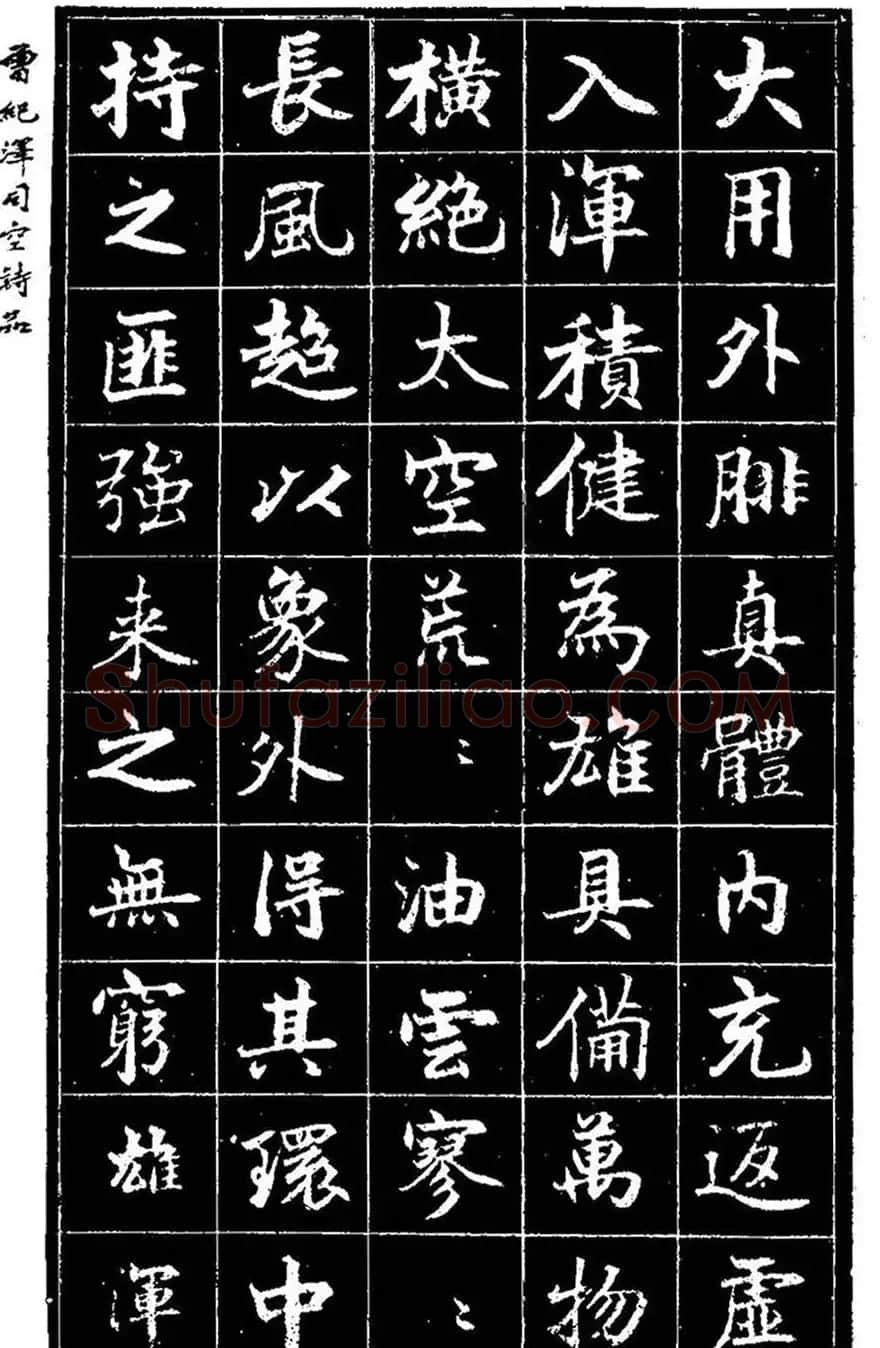 大用外腓真體内充返虛
入渾積健為雄具備萬物
橫絶太空荒〻油雲寥〻
長風超以象外得其環中
持之匪強来之無窮雄渾
曾紀澤司空詩品
Shufaziliao.COM